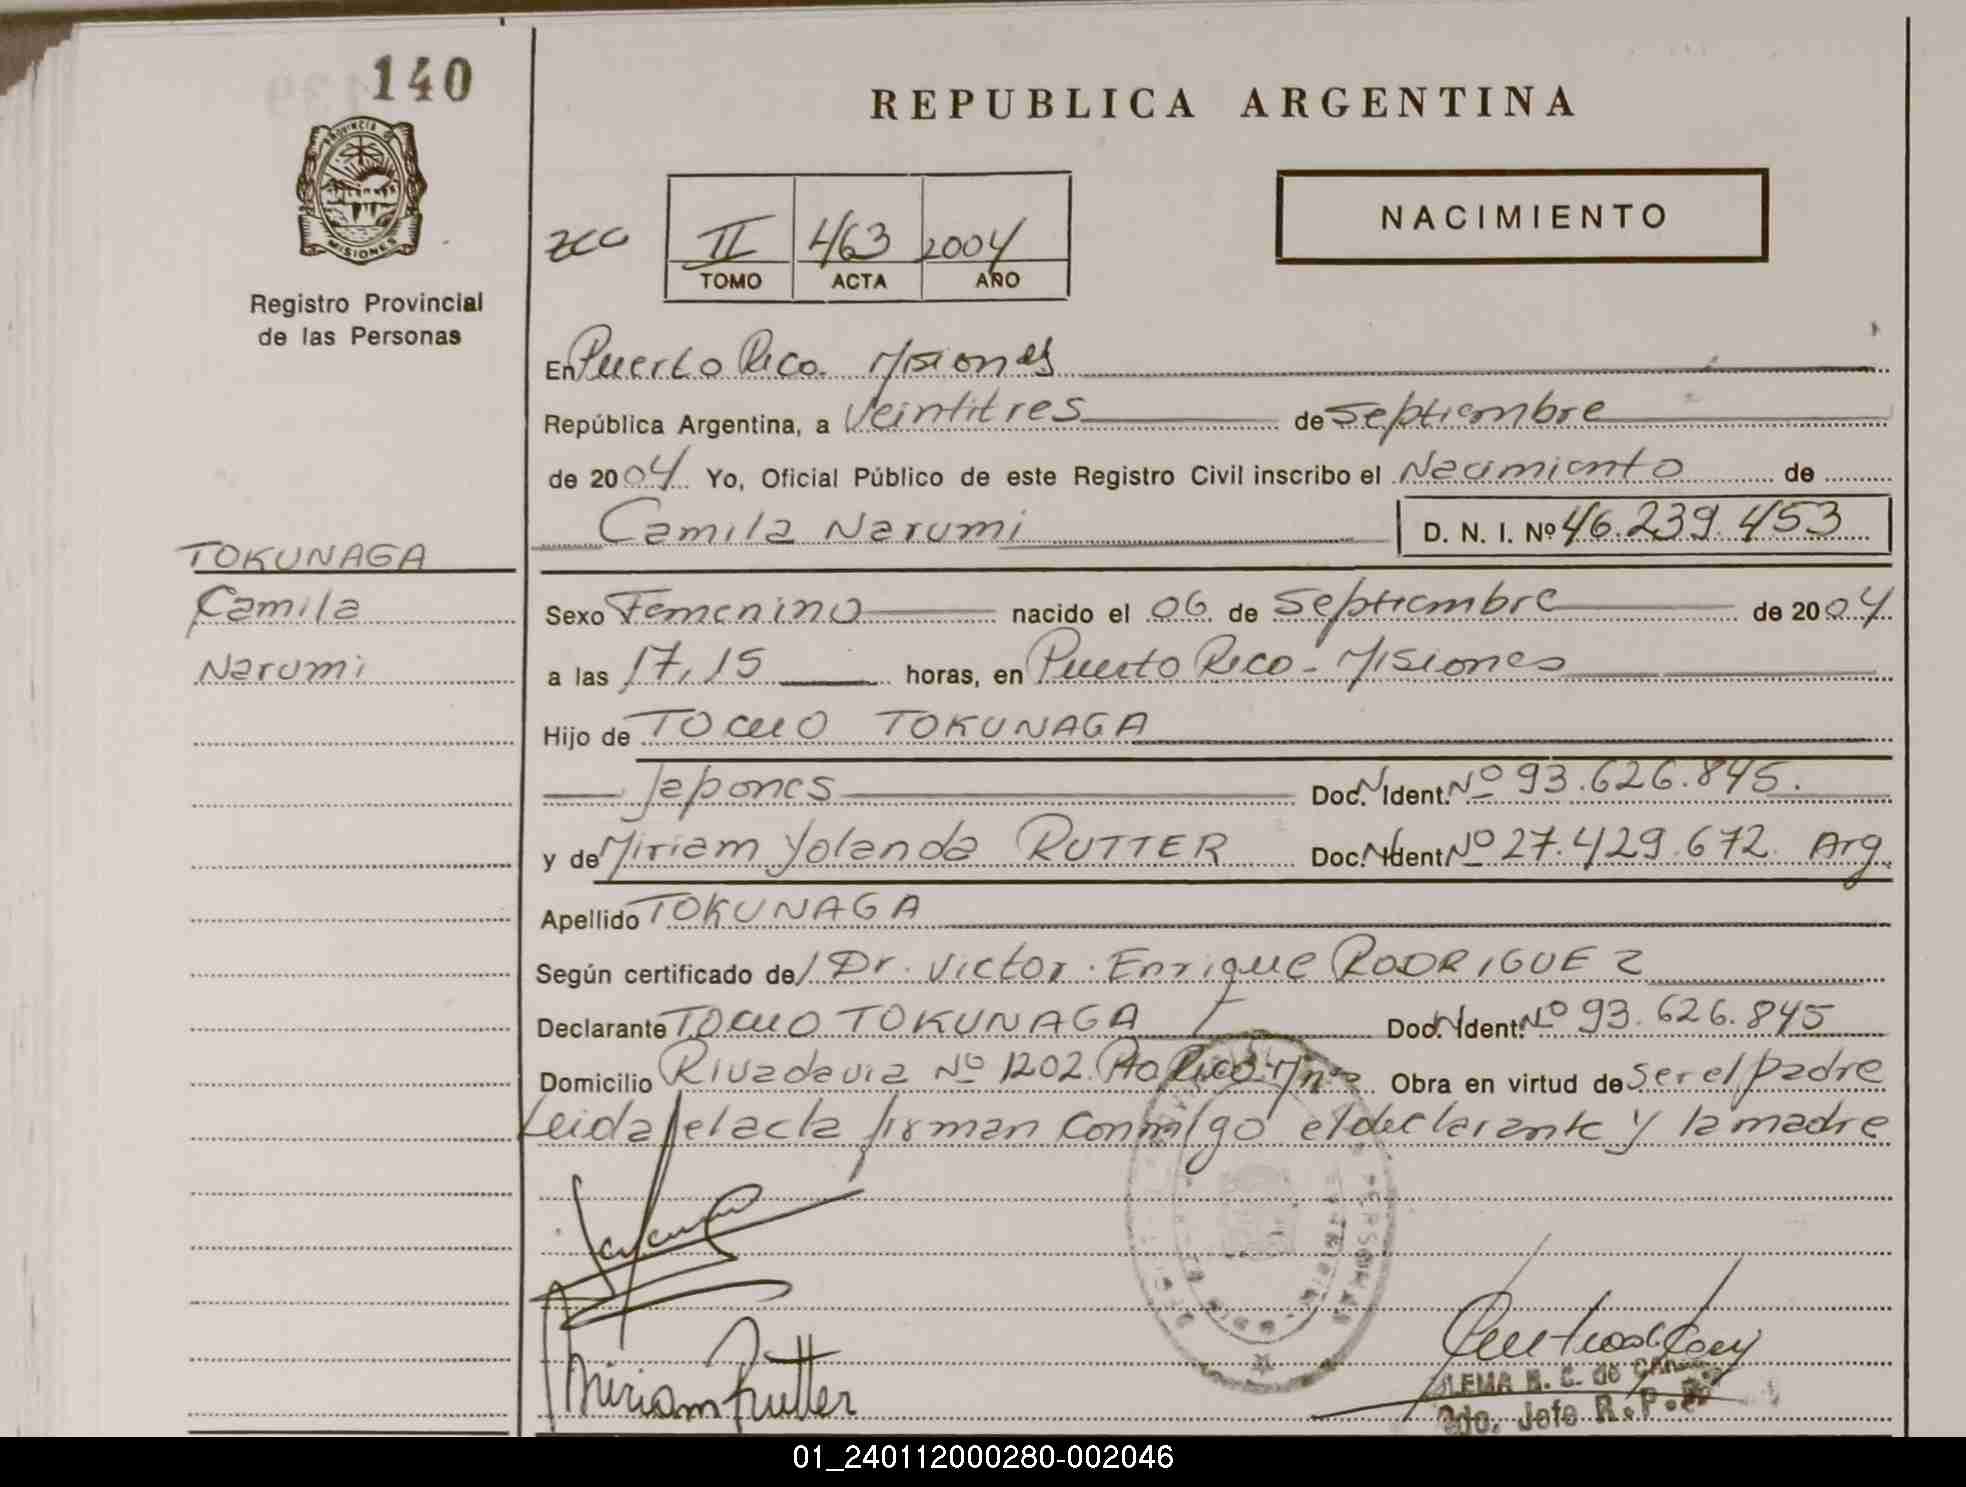 140
REPUBLICA ARGENTINA
PROVINCIA DE
MISIONES
Registro Provincial
de las Personas
NACIMIENTO
II 463 2004
TOMO ACTA AÑO
En Puerto Rico. Misiones
República Argentina, a Veintitres de Septiembre
de 2004 Yo, Oficial Público de este Registro Civil inscribo el Nacimiento de
Camila Narumi D. N. I. Nº 46.239.453
TOKUNAGA
Camila
Narumi
Sexo Femenino nacido el 06 de Septiembre de 2004
a las 17,15 horas, en Puerto Rico - Misiones
Hijo de TOCHIO TOKUNAGA
Japones Doc. N Ident. Nº 93.626.845.
y de Miriam Yolanda RUTTER Doc. N Ident. Nº 27.429.672. Arg.
Apellido TOKUNAGA
Según certificado de Dr. Victor Enrique RODRIGUEZ
Declarante TOCHIO TOKUNAGA Doc. N Ident. Nº 93.626.845
Domicilio Rivadavia Nº 1202. Pto Rico. Mnes Obra en virtud de ser el padre
Leida el acta firman conmigo el declarante y la madre
Miriam Rutter
LEMA R. C. de
Jefe R. P.
01_240112000280-002046